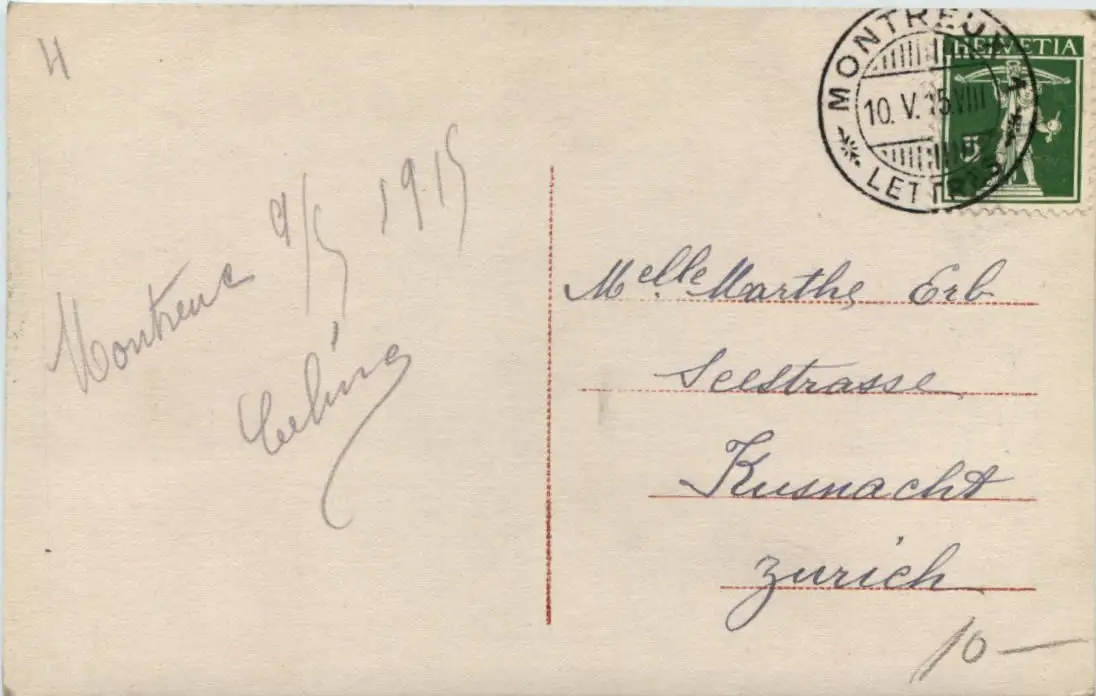 4
MONTREUX 1
HELVETIA
10. V. 15. VIII
LETTRES
Montreux 9/5 1915
Melle Marthe Erb
Seestrasse
Kusnacht
Zurich
10 —